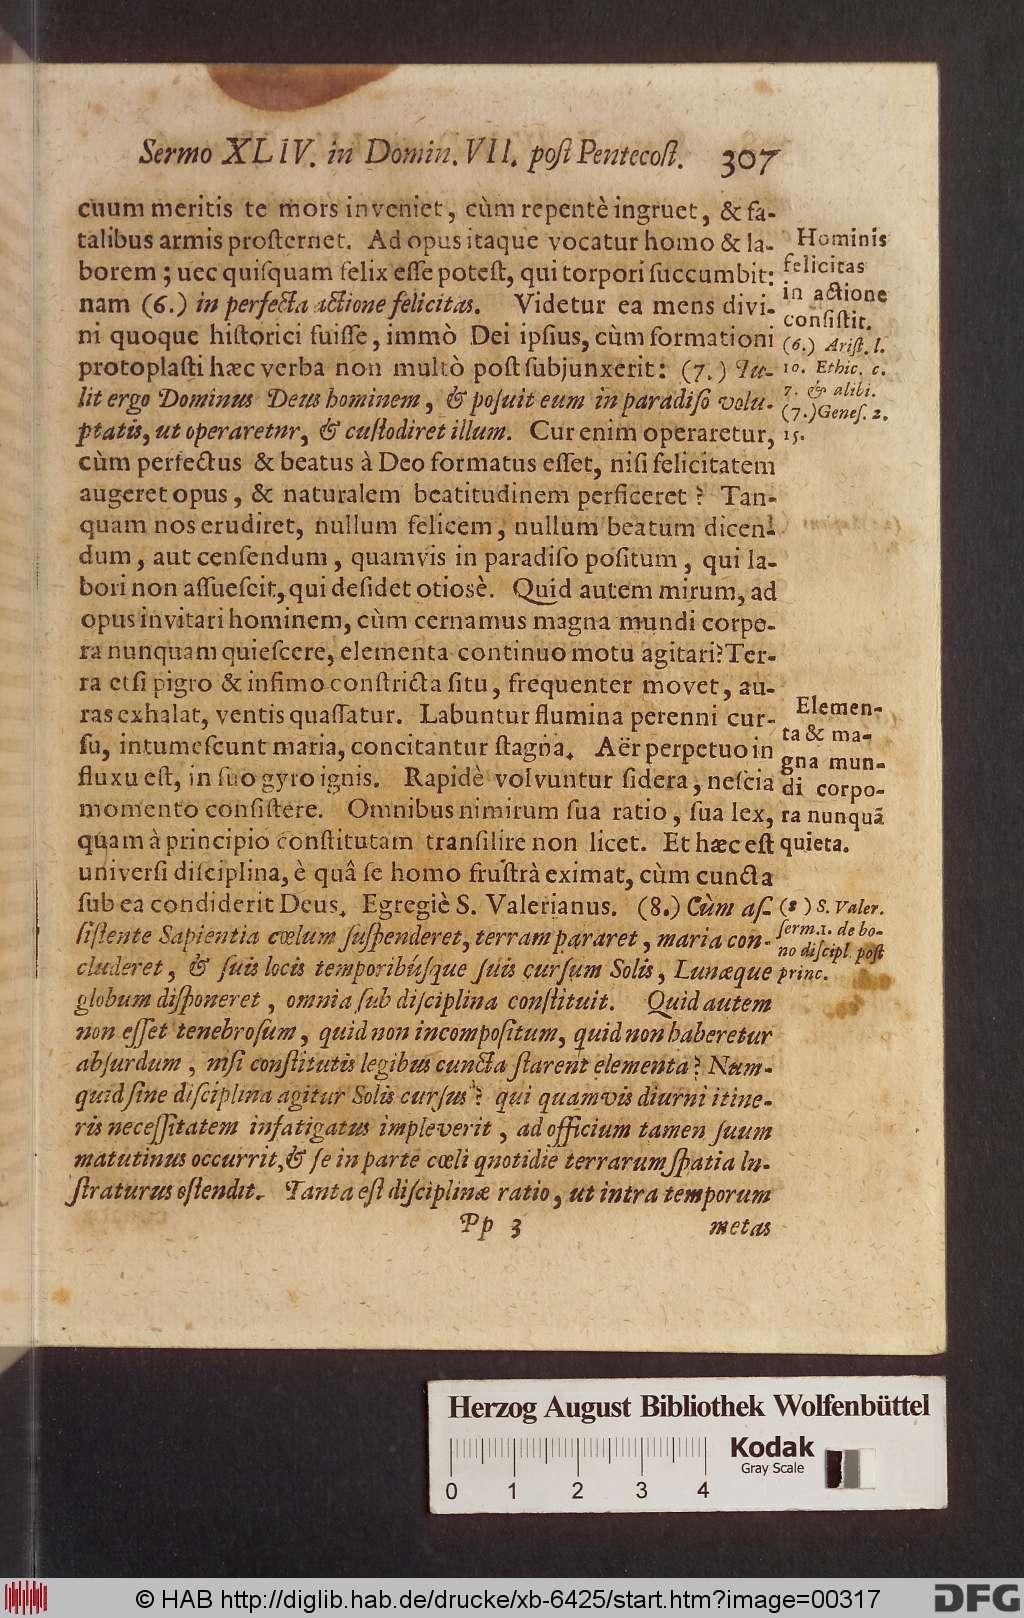 Sermo XLIV. in Domin. VII. poſt Pentecoſt. 307
cuum meritis te mors inveniet, cùm repentè ingruet, & fa-
talibus armis proſternet. Ad opus itaque vocatur homo & la-
borem; uec quiſquam felix eſſe poteſt, qui torpori ſuccumbit:
nam (6.) in perfecta actione felicitas. Videtur ea mens divi-
ni quoque hiſtorici fuiſſe, immò Dei ipſius, cùm formationi
protoplaſti hæc verba non multò poſt ſubjunxerit: (7.) Tu-
lit ergo Dominus Deus hominem, & poſuit eum in paradiſo volu-
ptatis, ut operaretnr, & cuſtodiret illum. Cur enim operaretur,
cùm perfectus & beatus à Deo formatus eſſet, niſi felicitatem
augeret opus, & naturalem beatitudinem perficeret? Tan-
quam nos erudiret, nullum felicem, nullum beatum dicen-
dum, aut cenſendum, quamvis in paradiſo poſitum, qui la-
bori non aſſueſcit, qui deſidet otiosè. Quid autem mirum, ad
opus invitari hominem, cùm cernamus magna mundi corpo-
ra nunquam quieſcere, elementa continuo motu agitari? Ter-
ra etſi pigro & infimo conſtricta ſitu, frequenter movet, au-
ras exhalat, ventis quaſſatur. Labuntur flumina perenni cur-
ſu, intumeſcunt maria, concitantur ſtagna. Aër perpetuo in
fluxu eſt, in ſuo gyro ignis. Rapidè volvuntur ſidera, neſcia
momento conſiſtere. Omnibus nimirum ſua ratio, ſua lex,
quam à principio conſtitutam tranſilire non licet. Et hæc eſt
univerſi diſciplina, è quâ ſe homo fruſtrà eximat, cùm cuncta
ſub ea condiderit Deus. Egregiè S. Valerianus. (8.) Cùm aſ-
ſiſtente Sapientia cœlum ſuſpenderet, terram pararet, maria con-
cluderet, & ſuis locis temporibúſque ſuis curſum Solis, Lunæque
globum diſponeret, omnia ſub diſciplina conſtituit. Quid autem
non eſſet tenebroſum, quid non incompoſitum, quid non haberetur
abſurdum, niſi conſtitutis legibus cuncta ſtarent elementa? Num-
quid ſine diſciplina agitur Solis curſus? qui quamvis diurni itine-
ris neceſſitatem infatigatus impleverit, ad officium tamen ſuum
matutinus occurrit, & ſe in parte cœli quotidie terrarum ſpatia lu-
ſtraturus oſtendit. Tanta eſt diſciplinæ ratio, ut intra temporum
Pp 3 metas
Hominis
felicitas
in actione
conſiſtit.
(6.) Ariſt. l.
10. Ethic. c.
7. & alibi.
(7.) Geneſ. 2.
15.
Elemen-
ta & ma-
gna mun-
di corpo-
ra nunquã
quieta.
(8) S. Valer.
ſerm. 1. de bo-
no diſcipl. poſt
princ.
Herzog August Bibliothek Wolfenbüttel
Kodak
Gray Scale
0 1 2 3 4
© HAB http://diglib.hab.de/drucke/xb-6425/start.htm?image=00317
DFG